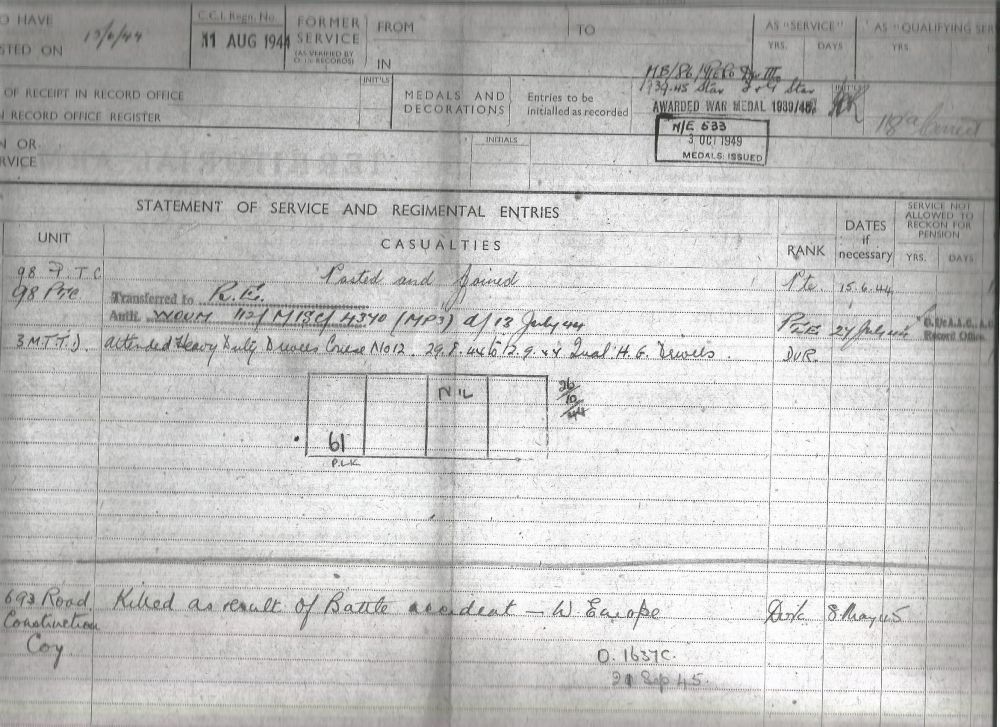 O HAVE
STED ON 15/6/44
C.C.I. Regn. No.
11 AUG 1944
FORMER
SERVICE
(AS VERIFIED BY
O. i/c RECORDS)
FROM
IN
TO
AS "SERVICE"
YRS. DAYS
AS "QUALIFYING SER
YRS.
OF RECEIPT IN RECORD OFFICE
N RECORD OFFICE REGISTER
INIT'LS
MEDALS AND
DECORATIONS
Entries to be
initialled as recorded
1939-45 Star F & G Star
AWARDED WAR MEDAL 1939/45
INIT'LS
N/E 533
3 OCT 1949
MEDALS ISSUED
N OR
RVICE
INITIALS
STATEMENT OF SERVICE AND REGIMENTAL ENTRIES
UNIT
CASUALTIES
RANK
DATES
if
necessary
SERVICE NOT
ALLOWED TO
RECKON FOR
PENSION
YRS. DAYS
98 P.T.C Posted and joined Pte. 15.6.44
98 PTC Transferred to R.E.
Auth. WOUM 112/MISC/4340 (MP3) d/13 July 44 PTE 27 July 44
Record Office
3 M.T.T.D. attended Heavy Duty Drivers Course No 12. 29.8.44 to 12.9.44 Qual. H.G. Drivers. DVR.
NIL
26/10/44
61
P.L.K
693 Road Construction Coy Killed as result of Battle accident - W. Europe Dvr. 8 May 45
O. 1637C.
21 Sep 45.